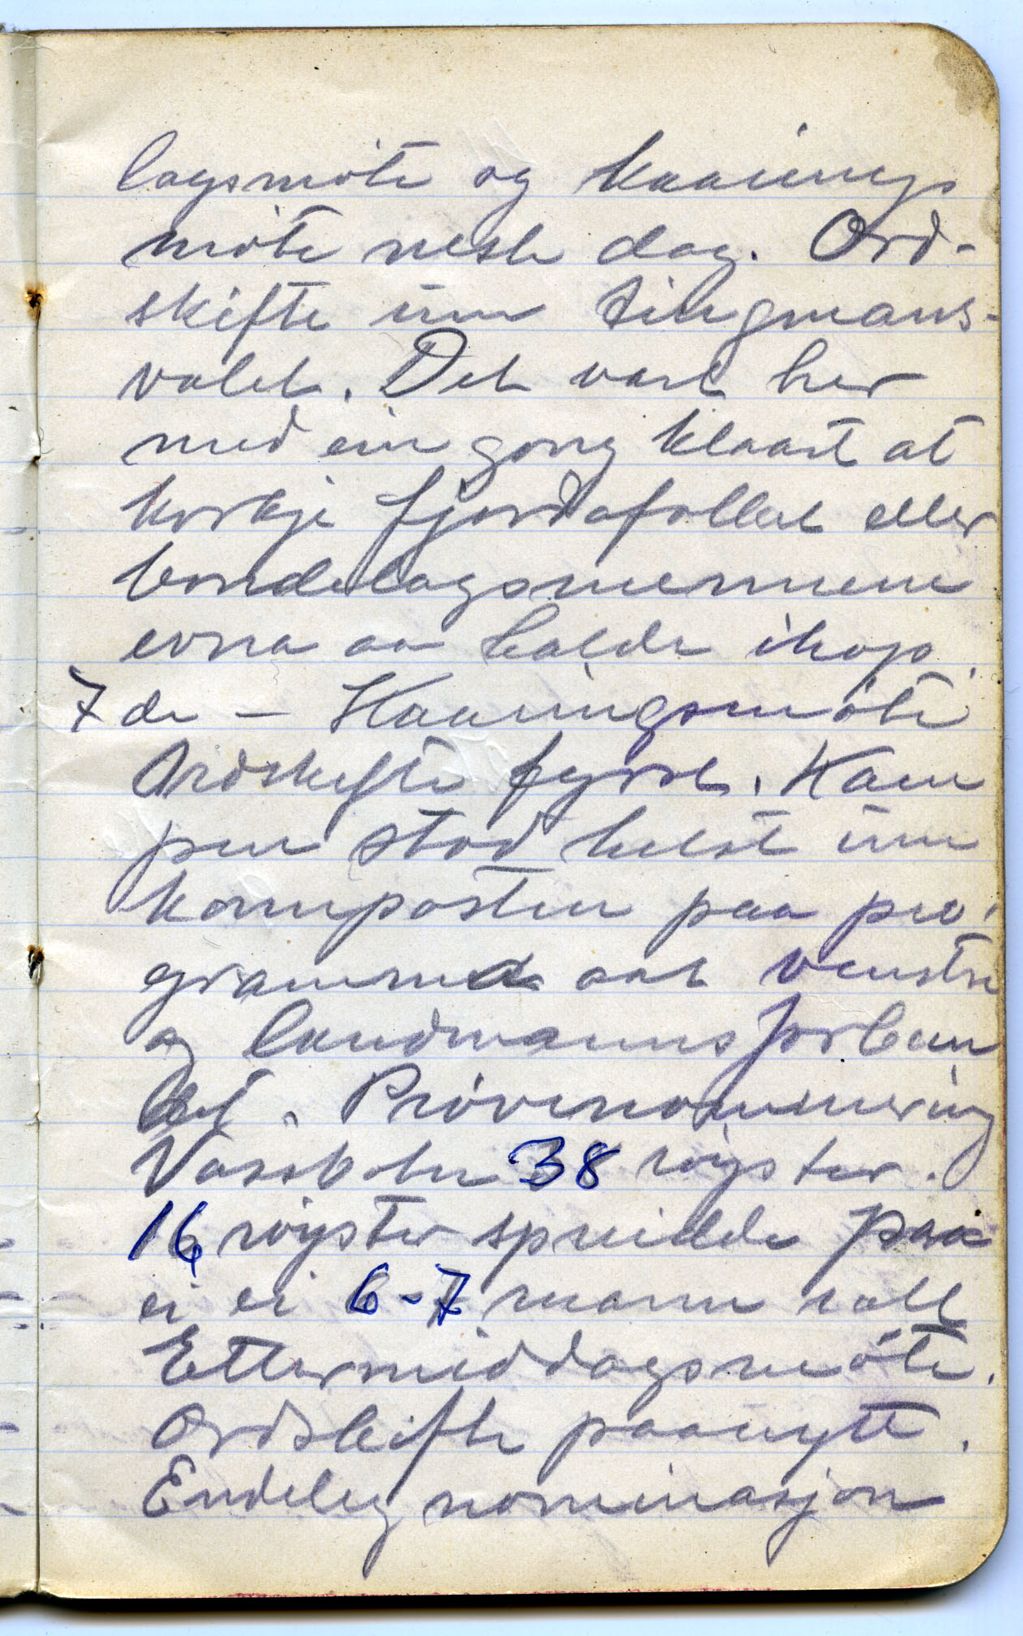 lagsmöte og kaarings
möte neste dag. Ord-
skifte um tingmans-
valet. Det vart her
med ein gong klaart at
korkje fjordafolket eller
bondelagsmennene
evna aa halde ihop.
7 de – Kaaringsmöte
Ordskifte fyrst. Kam
pen stod helst um
kornposten paa pro-
gramma aat venstre
og landmannsforbun
det. Prövenominering
Vassbotn 38 röyster.
16 röyster spreidde paa
ei 6-7 mann
Ettermiddagsmöte.
Ordskifte paanytt.
Endeleg nominasjon